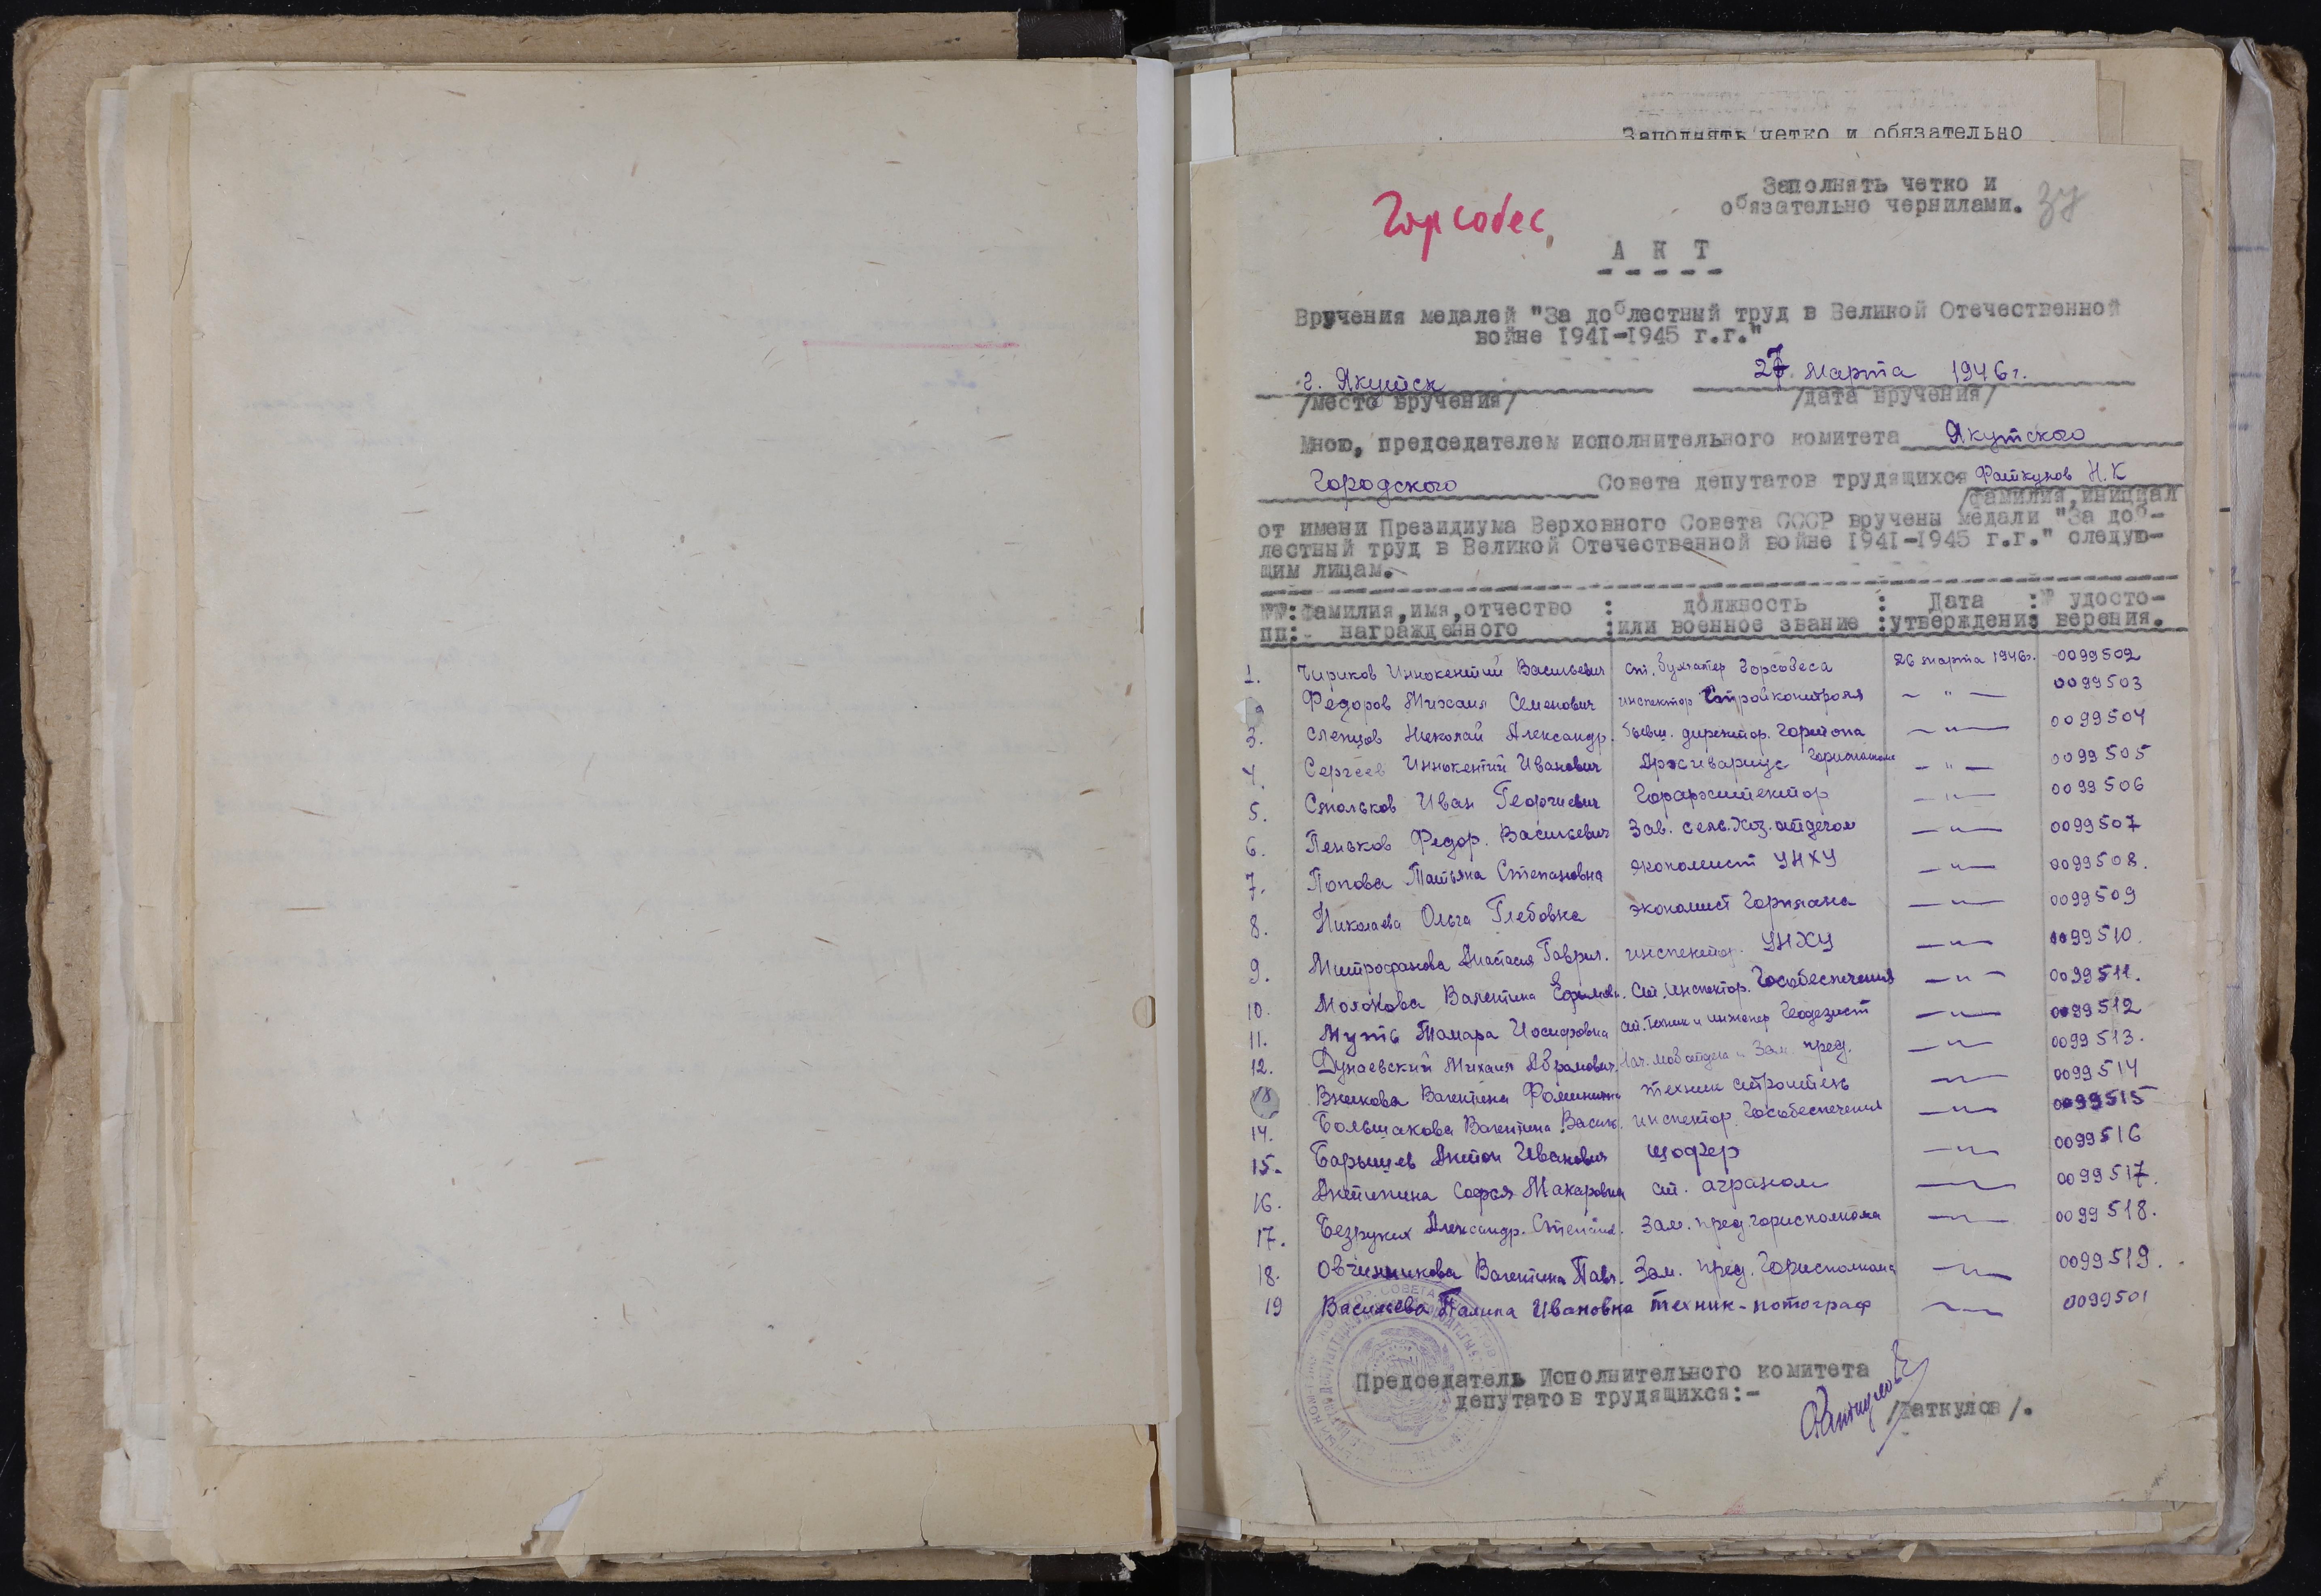 Заполнять четко и обязательно
Заполнять четко и
обязательно чернилами.
Горсобес
А К Т
Вручения медалей "За доблестный труд в Великой Отечественной
войне 1941-1945 г.г."
г. Якутск 27 марта 1946 г.
/место вручения/ /дата вручения/
Мною, председателем исполнительного комитета Якутского
Городского Совета депутатов трудящихся Фаткулов Н.К
/фамилия, инициал
от имени Президиума Верховного Совета СССР вручены медали "За доб-
лестный труд в Великой Отечественной войне 1941-1945 г.г." следую-
щим лицам.
№№: Фамилия, имя, отчество : должность : Дата :№ удосто-
пп: награжденного :или военное звание :утверждения верения.
1. Чириков Иннокентий Васильевич ст. бухгалтер Горсобеса 26 марта 1946г. 0099502
Федоров Михаил Семенович инспектор Стройконтроля — " — 0099503
3. Слепцов Николай Александр. бывш. директор. Горпопа — " — 0099504
4. Сергеев Иннокентий Иванович — " — 0099505
5. Смольков Иван Георгиевич Горархитектор — " — 0099506
6. Пеньков Федор. Васильевич Зав. сель.хоз. отделом — " — 0099507
7. Попова Татьяна Степановна экономист УНХУ — " — 0099508.
8. Николаева Ольга Глебовна экономист Горплана — " — 0099509
9. Митрофанова Анастасия Гаврил. инспектор. УНХУ — " — 0099510.
10. Молокова Валентина Ефимов. ст. инспектор. Гособеспечения — " — 0099511.
11. Муть Тамара Иосифовна ст. техник и инженер Геодезист — " — 0099512
12. Дунаевский Михаил Абрамович. Нач. моб отдела и Зам. пред. — " — 0099513.
13 Внукова Валентина техник строитель — " — 0099514
14. Большакова Валентина Васил. инспектор. Гособеспечения — " — 0099515
15. Барышев Антон Иванович шофер — " — 0099516
16. Антипина Софья Макаровна ст. аграном — " — 0099517.
17. Безруких Александр. Степан. Зам. пред. горисполкома — " — 0099518.
18. Овчинникова Валентина Павл. Зам. пред. Горисполкома — " — 0099519.
19 Васильева Галина Ивановна техник-потограф — " — 0099501
Председатель Исполнительного комитета
депутатов трудящихся:-
/Фаткулов/.